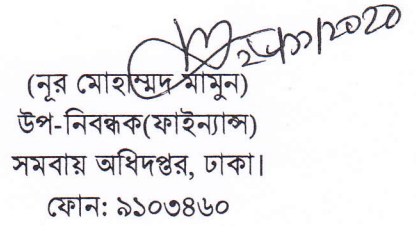 (নূর মোহাম্মদ মামুন)
উপ-নিবন্ধক(ফাইন্যান্স)
সমবায় অধিদপ্তর, ঢাকা।
ফোন: ৯১০৩৪৬০